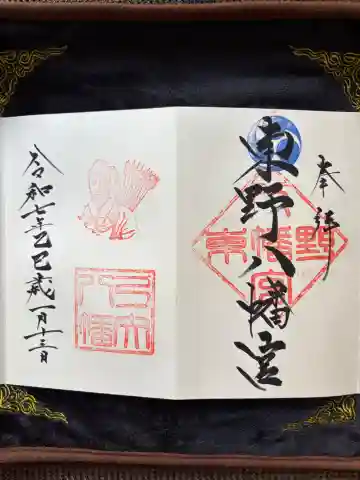 奉拝
東野八幡宮
東野
八幡宮
令和七年乙巳歳一月十三日
八幡